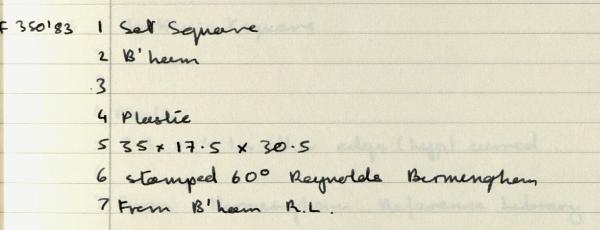 F 350'83 1 Set Square
2 B'ham
3
4 Plastic
5 35 x 17.5 x 30.5
6 stamped 60° Reynolds Birmingham
7 From B'ham R.L.